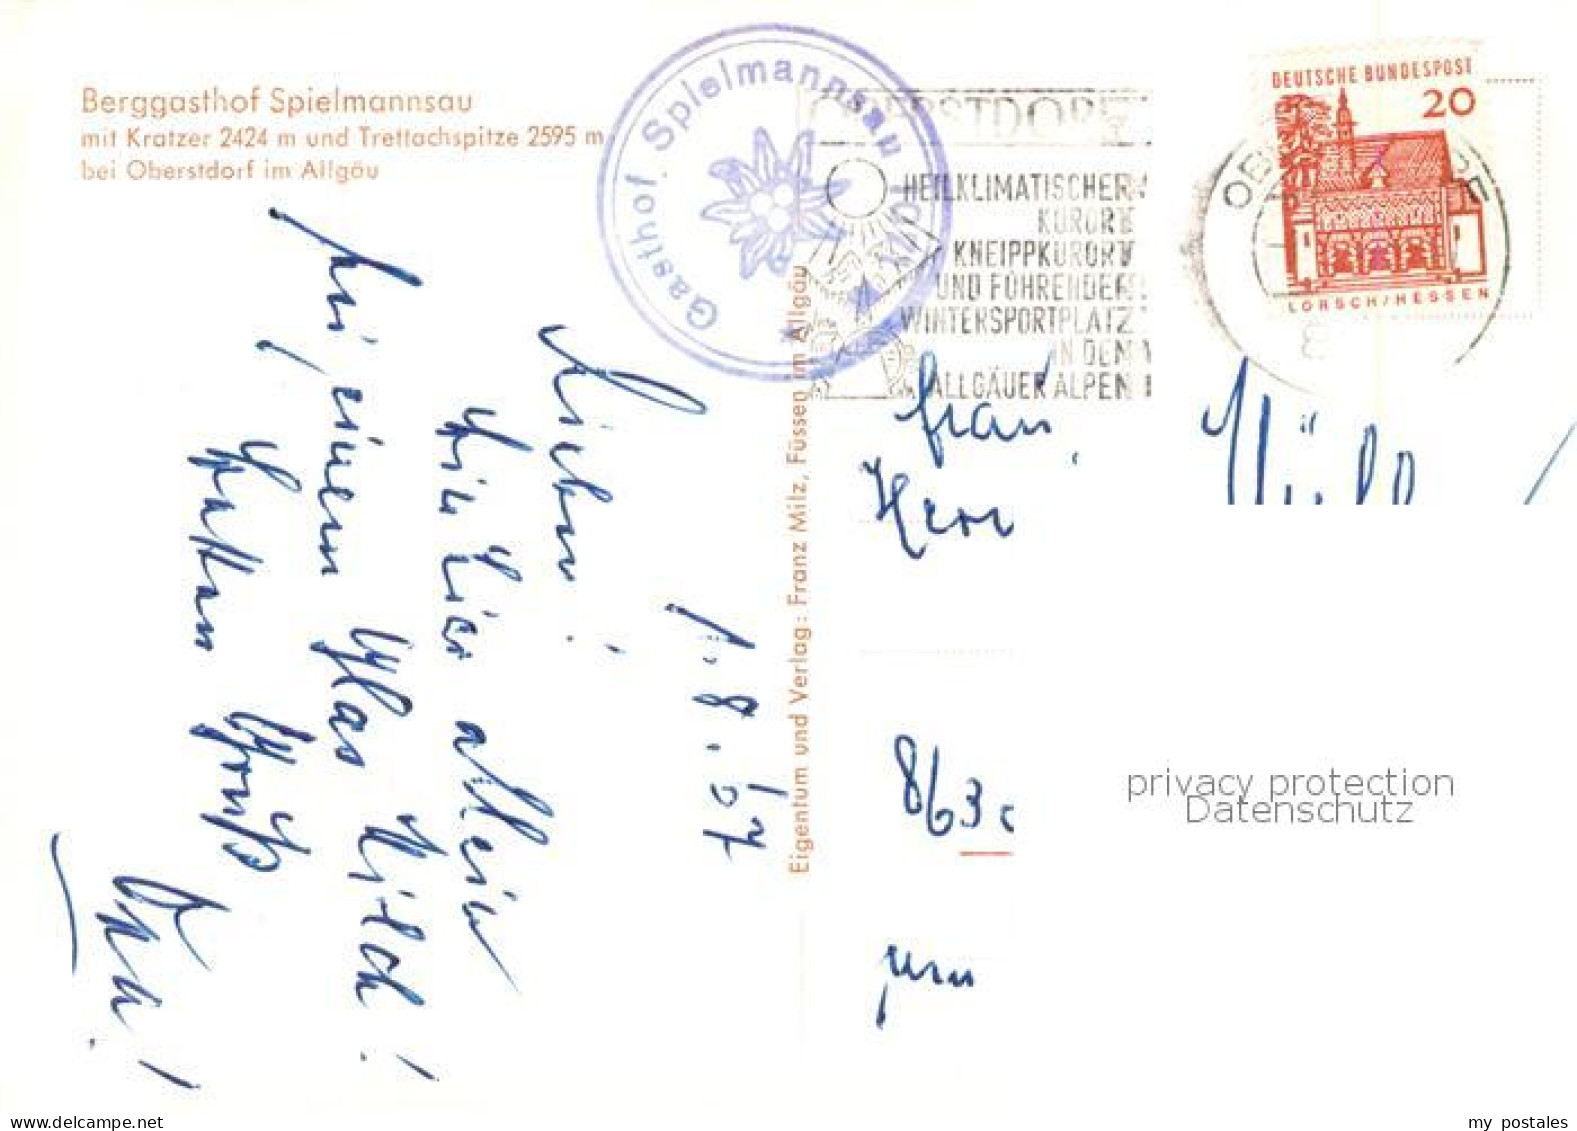 Berggasthof Spielmannsau
mit Kratzer 2424 m und Trettachspitze 2595 m
bei Oberstdorf im Allgäu
Gasthof Spielmannsau
OBERSTDORF
HEILKLIMATISCHER
KURORT
KNEIPPKURORT
UND FÜHRENDER
WINTERSPORTPLATZ
IN DEN
ALLGÄUER ALPEN
DEUTSCHE BUNDESPOST
20
LORSCH/HESSEN
Eigentum und Verlag: Franz Milz, Füssen im Allgäu
1.8.67
allein
bei einem Glas Milch!
Gruß
Frau
Herr
863
privacy protection
Datenschutz
delcampe.net
my_postales